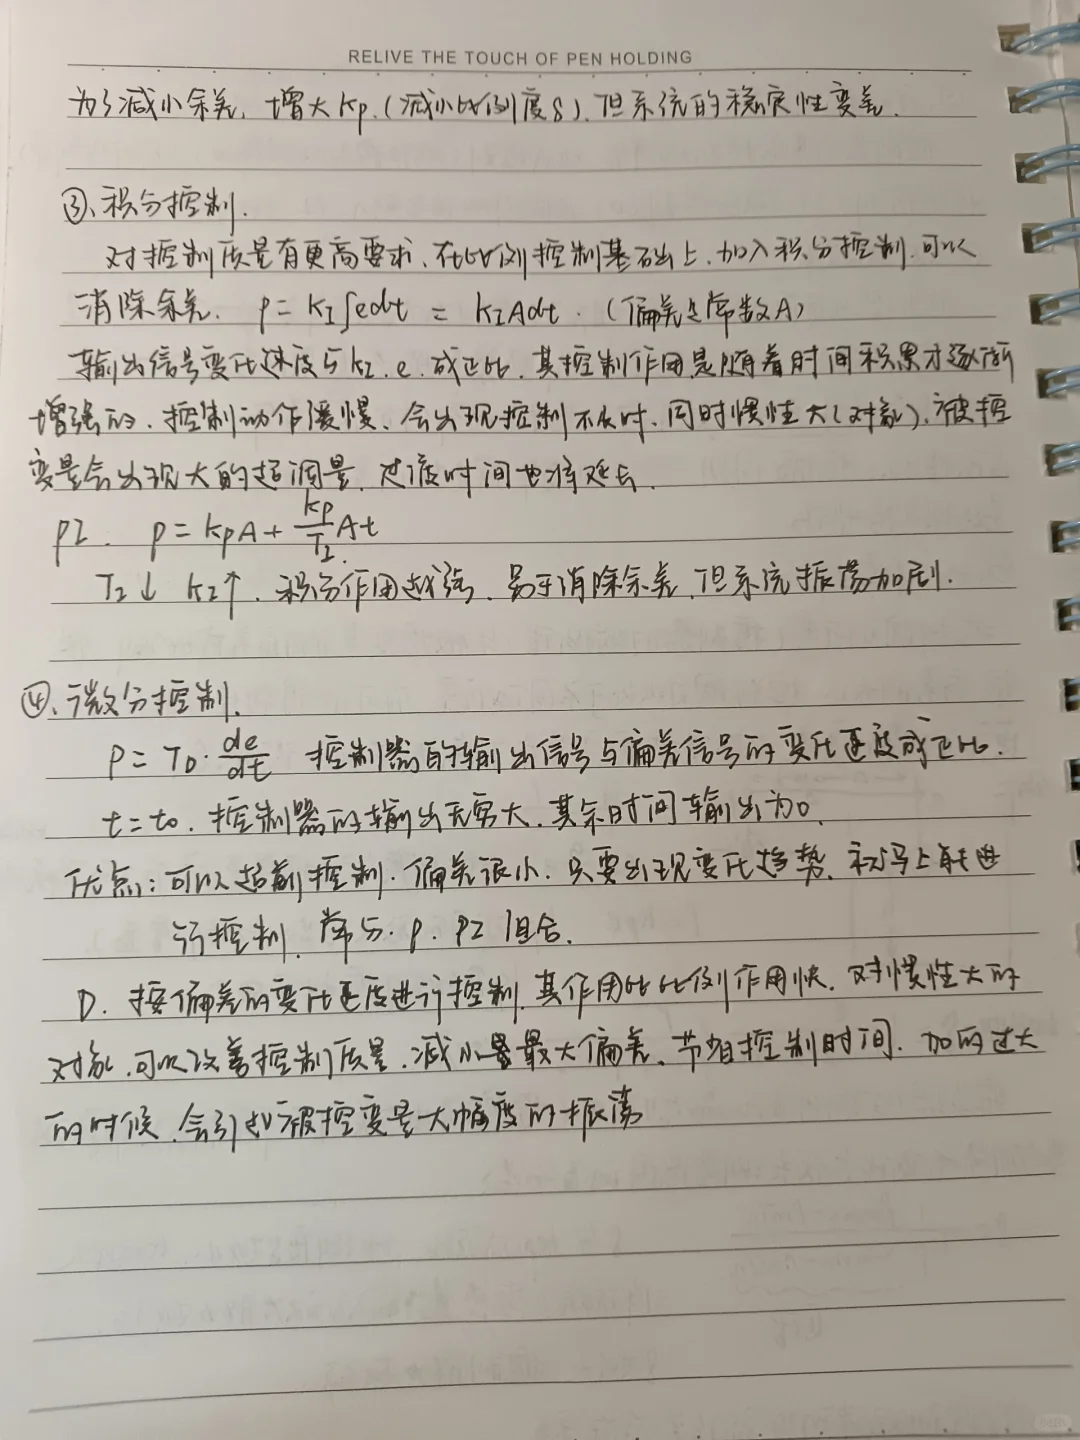 RELIVE THE TOUCH OF PEN HOLDING
为了减小余差, 增大Kp.(减小比例度δ). 但系统的稳定性变差.
③、积分控制.
对控制质量有更高要求、在比例控制基础上、加入积分控制.可以
消除余差. p = K_I∫edt = K_I Adt. (偏差是常数A)
输出信号变化速度与K_I.e.成正比.其控制作用是随着时间积累才逐渐
增强的、控制动作缓慢、会出现控制不及时、同时惯性大(对象)、被控
变量会出现大的超调量、过渡时间也将延长.
PI. p = KpA + \frac{Kp}{T_I}At
T_I↓ K_I↑. 积分作用越强、易于消除余差、但系统振荡加剧.
④、微分控制.
P = T_D·\frac{de}{dt} 控制器的输出信号与偏差信号的变化速度成正比.
t=t₀. 控制器的输出无穷大、其余时间输出为0.
优点: 可以超前控制. 偏差很小. 只要出现变化趋势、就马上能进
行控制、常与.P.PI组合.
D. 按偏差的变化速度进行控制、其作用比比例作用快、对惯性大的
对象、可以改善控制质量、减小最大偏差、节省控制时间、加的过大
的时候、会引起被控变量大幅度的振荡